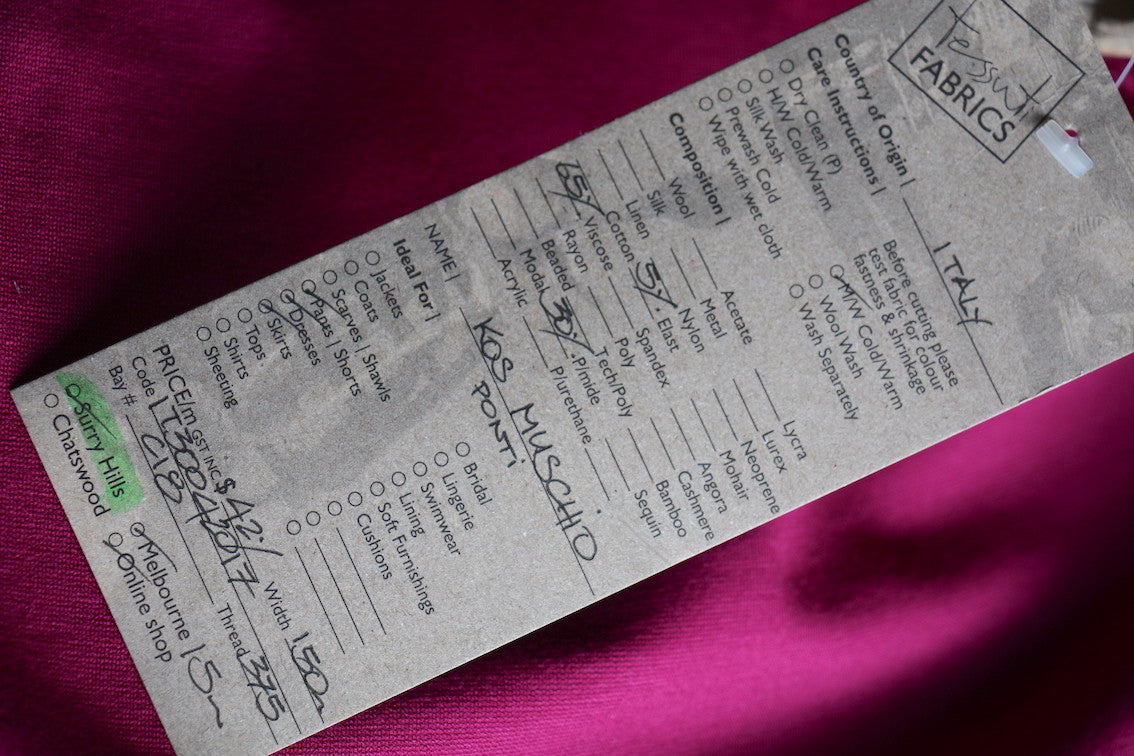 Tessuti
FABRICS
Country of Origin | ITALY
Care Instructions |
Dry Clean (P)
H/W Cold/Warm
Silk Wash
Prewash Cold
Wipe with wet cloth
Before cutting please
test fabric for colour
fastness & shrinkage
M/W Cold/Warm
Wool Wash
Wash Separately
Composition |
Wool
Silk
Linen
Cotton
65% Viscose
Rayon
Beaded
Modal
Acrylic
Acetate
Metal
Nylon
5% Elast
Spandex
Poly
Tech/Poly
30% P/mide
P/urethane
Lycra
Lurex
Neoprene
Mohair
Angora
Cashmere
Bamboo
Sequin
NAME | KOS MUSCHIO
PONTI
Ideal For |
Jackets
Coats
Scarves | Shawls
Pants | Shorts
Dresses
Skirts
Tops
Shirts
Sheeting
Bridal
Lingerie
Swimwear
Lining
Soft Furnishings
Cushions
PRICE/m GST INC. $42/ Width 150
Code LT30042017 Thread 375
Bay # C18
Surry Hills
Chatswood
Melbourne 15m
Online shop